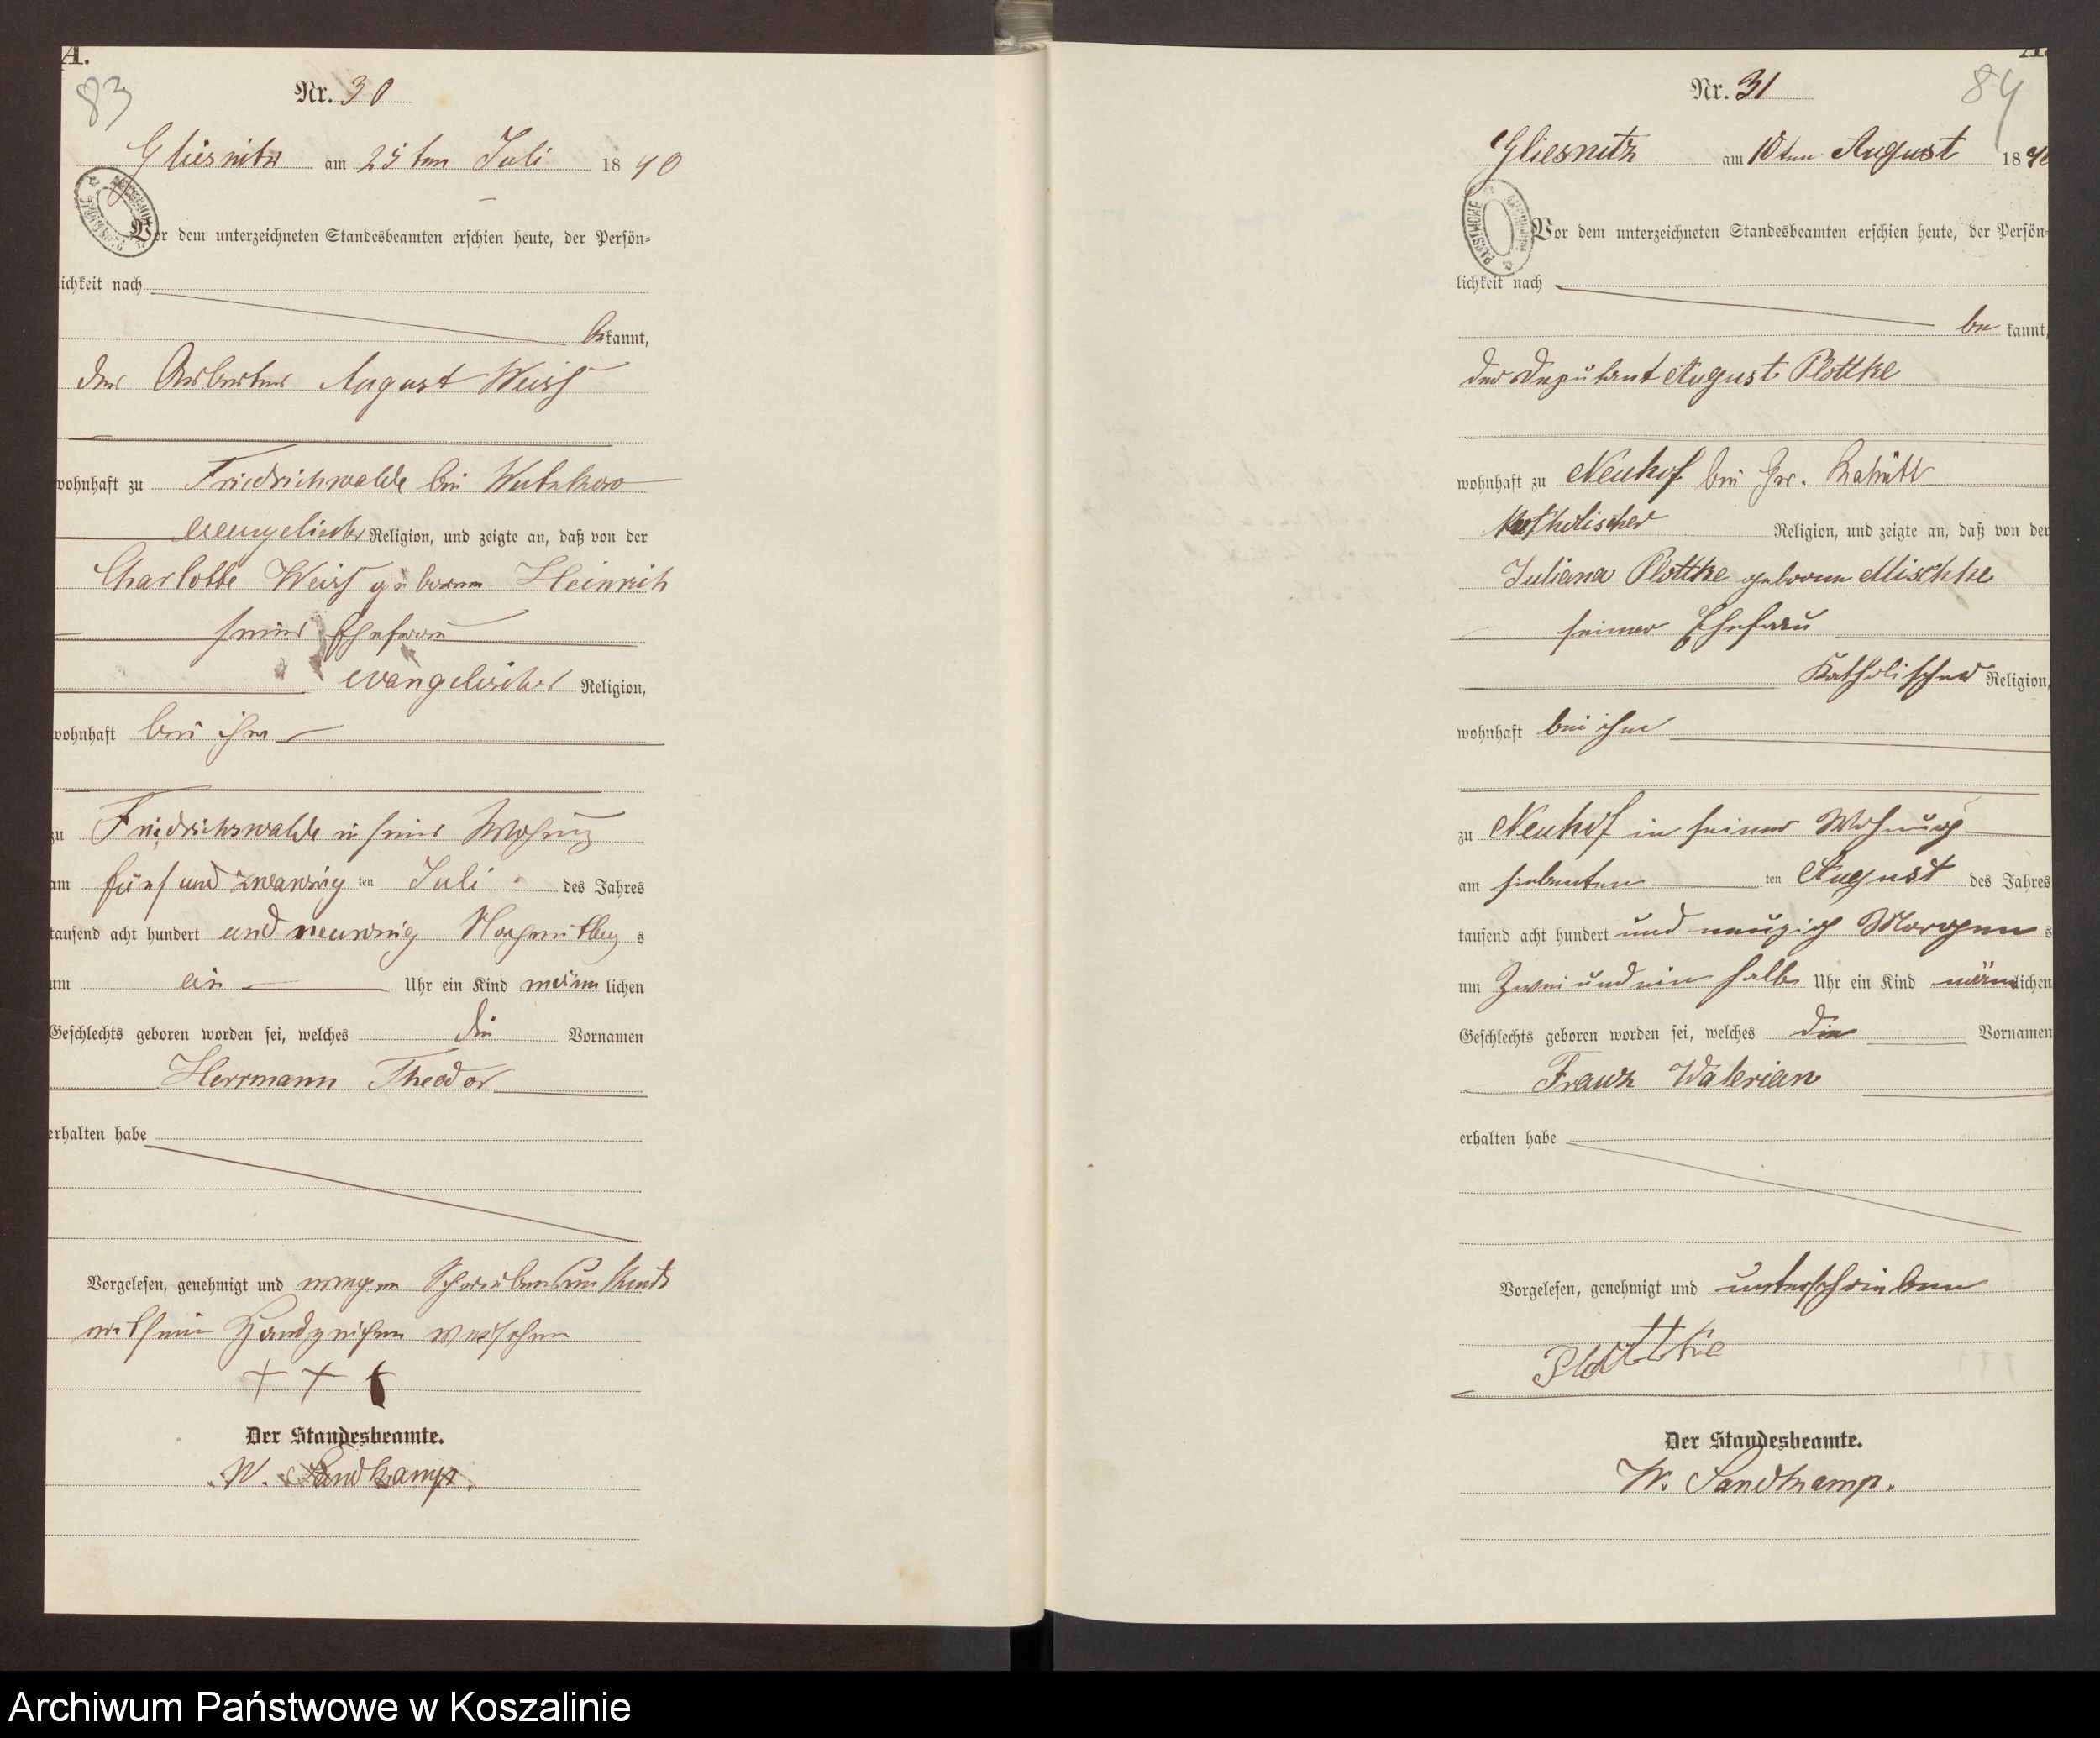 A.
83
Nr. 30
Gliesnitz am 25ten Juli 1890
Vor dem unterzeichneten Standesbeamten erschien heute, der Persön=
lichkeit nach
bekannt,
der Arbeiter August Weiss
wohnhaft zu Friedrichwalde bei
evangelischer Religion, und zeigte an, daß von der
Charlotte Weiss geborene Heinrich
seiner Ehefrau
evangelischer Religion,
wohnhaft bei ihm
zu Friedrichswalde in seiner Wohnung
am fünf und zwanzig ten Juli des Jahres
tausend acht hundert und neunzig Nachmittag s
um ein Uhr ein Kind männ lichen
Geschlechts geboren worden sei, welches die Vornamen
Herrmann Theodor
erhalten habe
Vorgelesen, genehmigt und wegen Schreibensunkunde
mit seinen Handzeichen versehen
+ + +
Der Standesbeamte.
W. Sandkamp.
A.
84
Nr. 31
Gliesnitz am 10ten August 1890
Vor dem unterzeichneten Standesbeamten erschien heute, der Persön=
lichkeit nach
be kannt,
der Deputant August Plottke
wohnhaft zu Neuhof bei Gr.
katholischer Religion, und zeigte an, daß von der
Juliana Plottke geborene Mischke
seiner Ehefrau
katholischer Religion,
wohnhaft bei ihm
zu Neuhof in seiner Wohnung
am siebenten ten August des Jahres
tausend acht hundert und neunzig Morgen s
um Zwei und ein halb Uhr ein Kind männlichen
Geschlechts geboren worden sei, welches die Vornamen
Franz Walerian
erhalten habe
Vorgelesen, genehmigt und unterschrieben
Plottke
Der Standesbeamte.
W. Sandkamp.
Archiwum Państwowe w Koszalinie